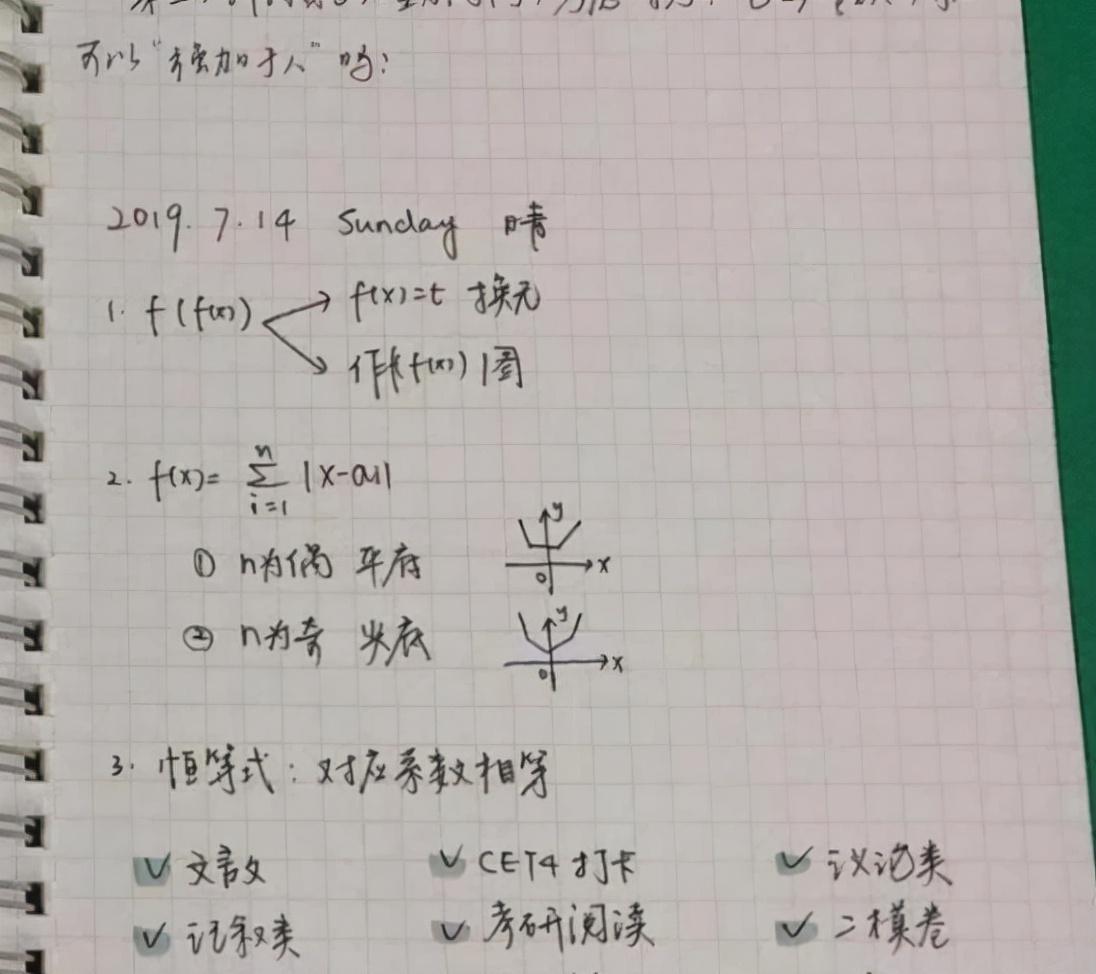 可以“强加于人”吗？
2019.7.14 Sunday 晴
1. f(f(x))
f(x)=t 换元
作f(x)图
2. f(x)= n ∑ i=1 |x-ai|
① n为偶 平底
y
x
0
② n为奇 尖底
y
x
0
3. 恒等式：对应系数相等
✓ 文言文 ✓ CET4打卡 ✓ 议论类
✓ 记叙类 ✓ 考研阅读 ✓ 二模卷